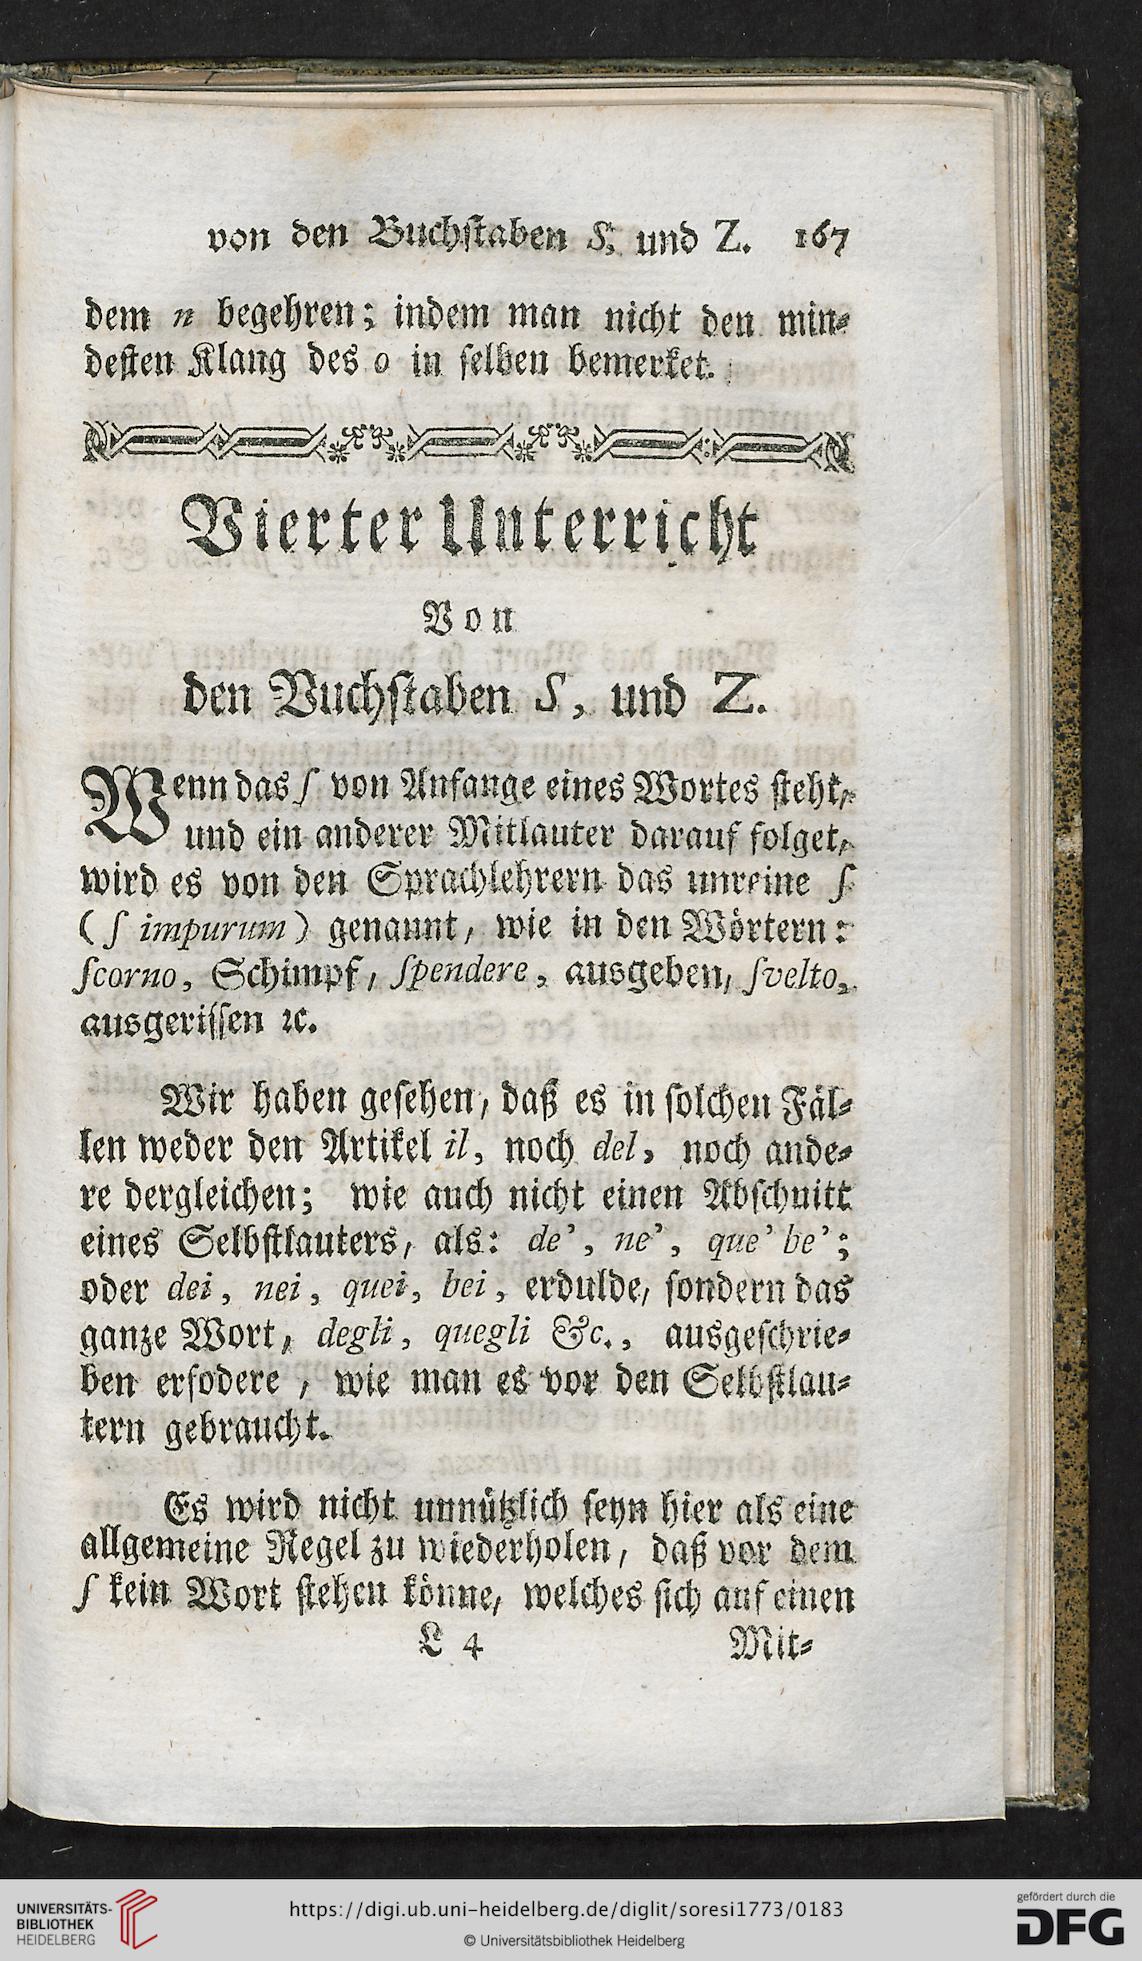 von den Buchſtaben S, und Z. 167
dem n begehren; indem man nicht den min⸗
deſten Klang des o in ſelben bemerket.
Vierter Unterricht
Von
den Buchſtaben S, und Z.
Wenn das ſ von Anfange eines Wortes ſteht,
und ein anderer Mitlauter darauf folget,
wird es von den Sprachlehrern das unreine ſ
(ſ impurum) genannt, wie in den Wörtern:
ſcorno, Schimpf, ſpendere, ausgeben, ſvelto,
ausgeriſſen ꝛc.
Wir haben geſehen, daß es in ſolchen Fäl⸗
len weder den Artikel il, noch del, noch ande⸗
re dergleichen; wie auch nicht einen Abſchnitt
eines Selbſtlauters, als: de', ne', que' be';
oder dei, nei, quei, bei, erdulde, ſondern das
ganze Wort, degli, quegli &c., ausgeſchrie⸗
ben erfodere, wie man es vor den Selbſtlau⸗
tern gebraucht.
Es wird nicht unnützlich ſeyn hier als eine
allgemeine Regel zu wiederholen, daß vor dem
ſ kein Wort ſtehen könne, welches ſich auf einen
L 4 Mit⸗
UNIVERSITÄTS-
BIBLIOTHEK
HEIDELBERG
https://digi.ub.uni-heidelberg.de/diglit/soresi1773/0183
© Universitätsbibliothek Heidelberg
gefördert durch die
DFG